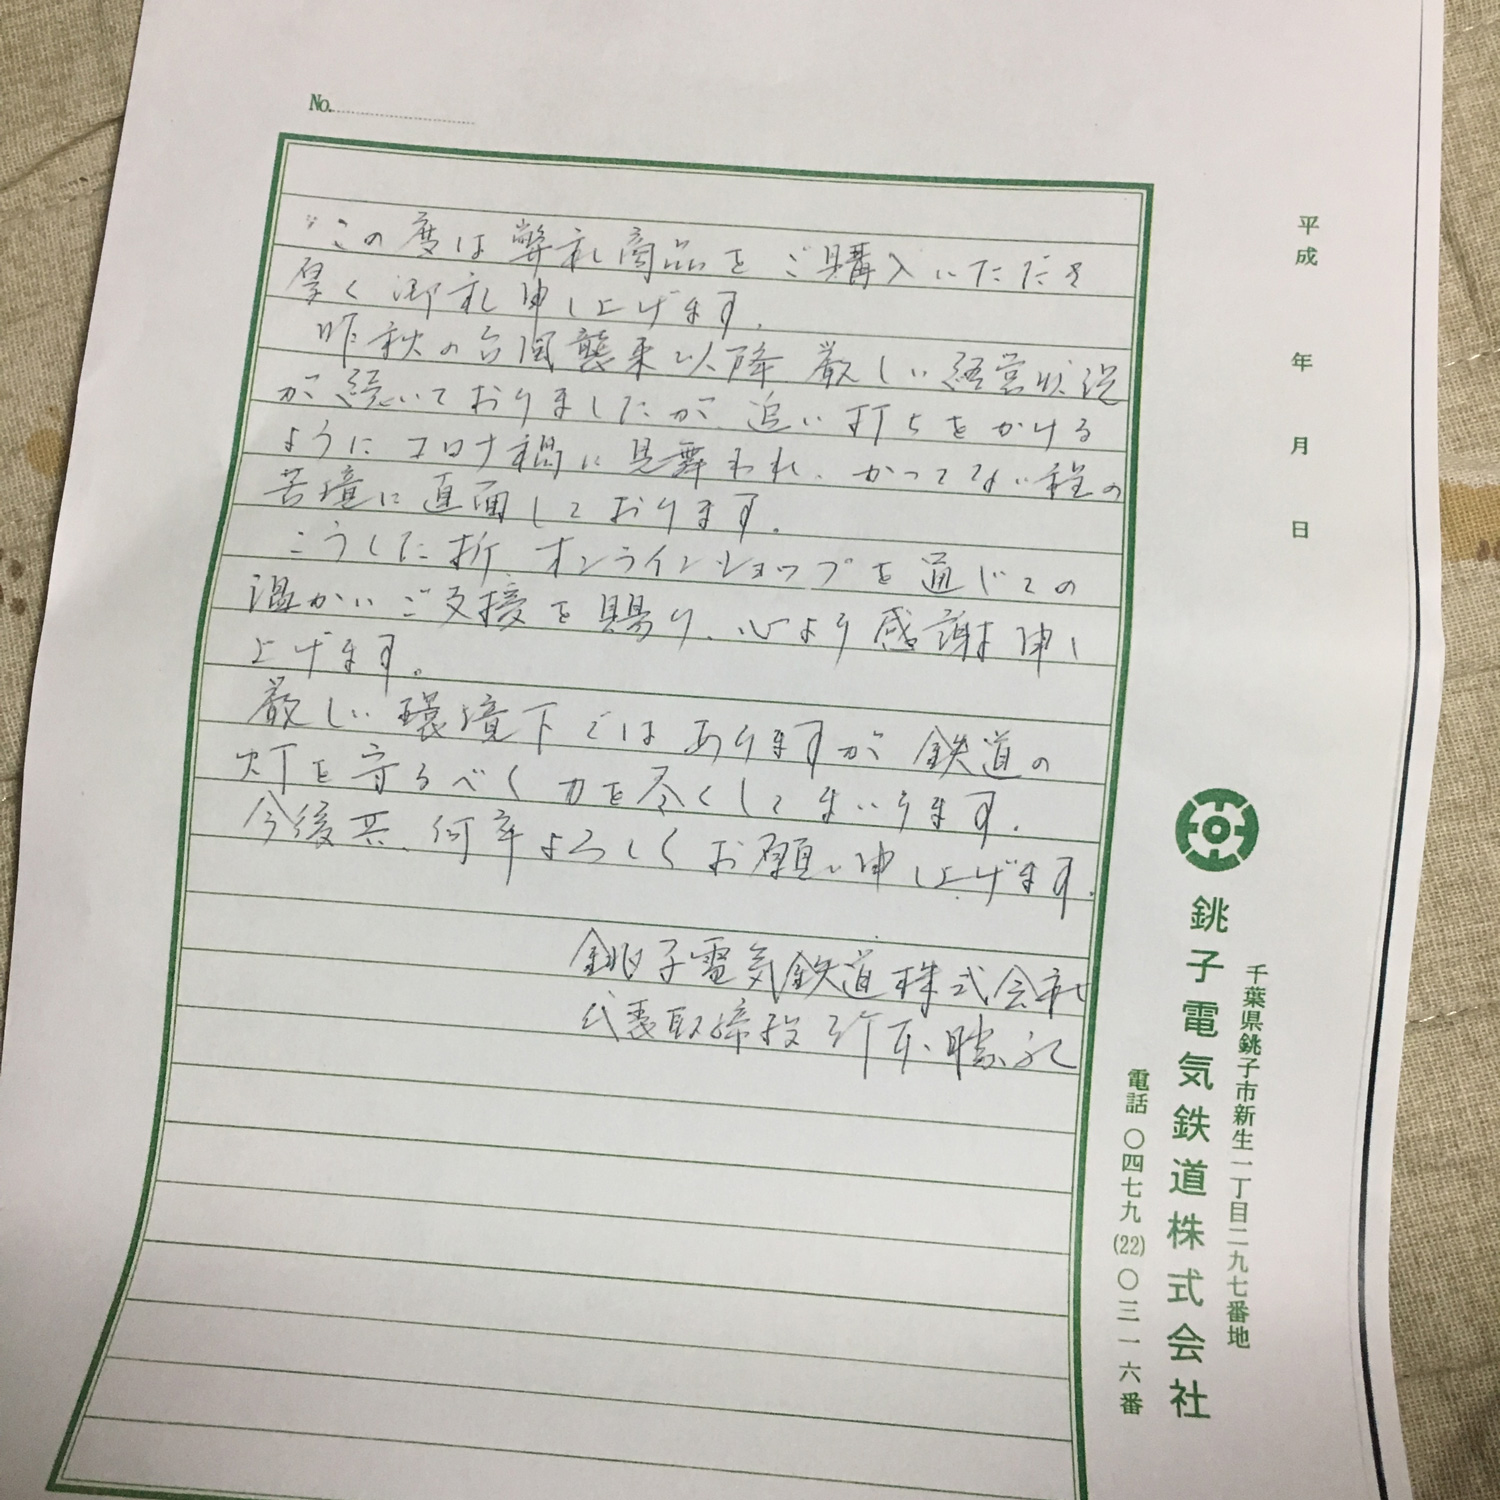 No.
この度は弊社商品をご購入いただき
厚く御礼申し上げます。
昨秋の台風襲来以降 厳しい経営状況
が続いておりましたが、追い打ちをかける
ようにコロナ禍に見舞われ、かつてない程の
苦境に直面しております。
こうした折、オンラインショップを通じての
温かいご支援を賜り、心より感謝申し
上げます。
厳しい環境下ではありますが 鉄道の
灯を守るべく力を尽くしてまいります。
今後共、何卒よろしくお願い申し上げます。
銚子電気鉄道株式会社
代表取締役 竹本勝紀
平成 年 月 日
千葉県銚子市新生一丁目二九七番地
銚子電気鉄道株式会社
電話 〇四七九(22)〇三一六番